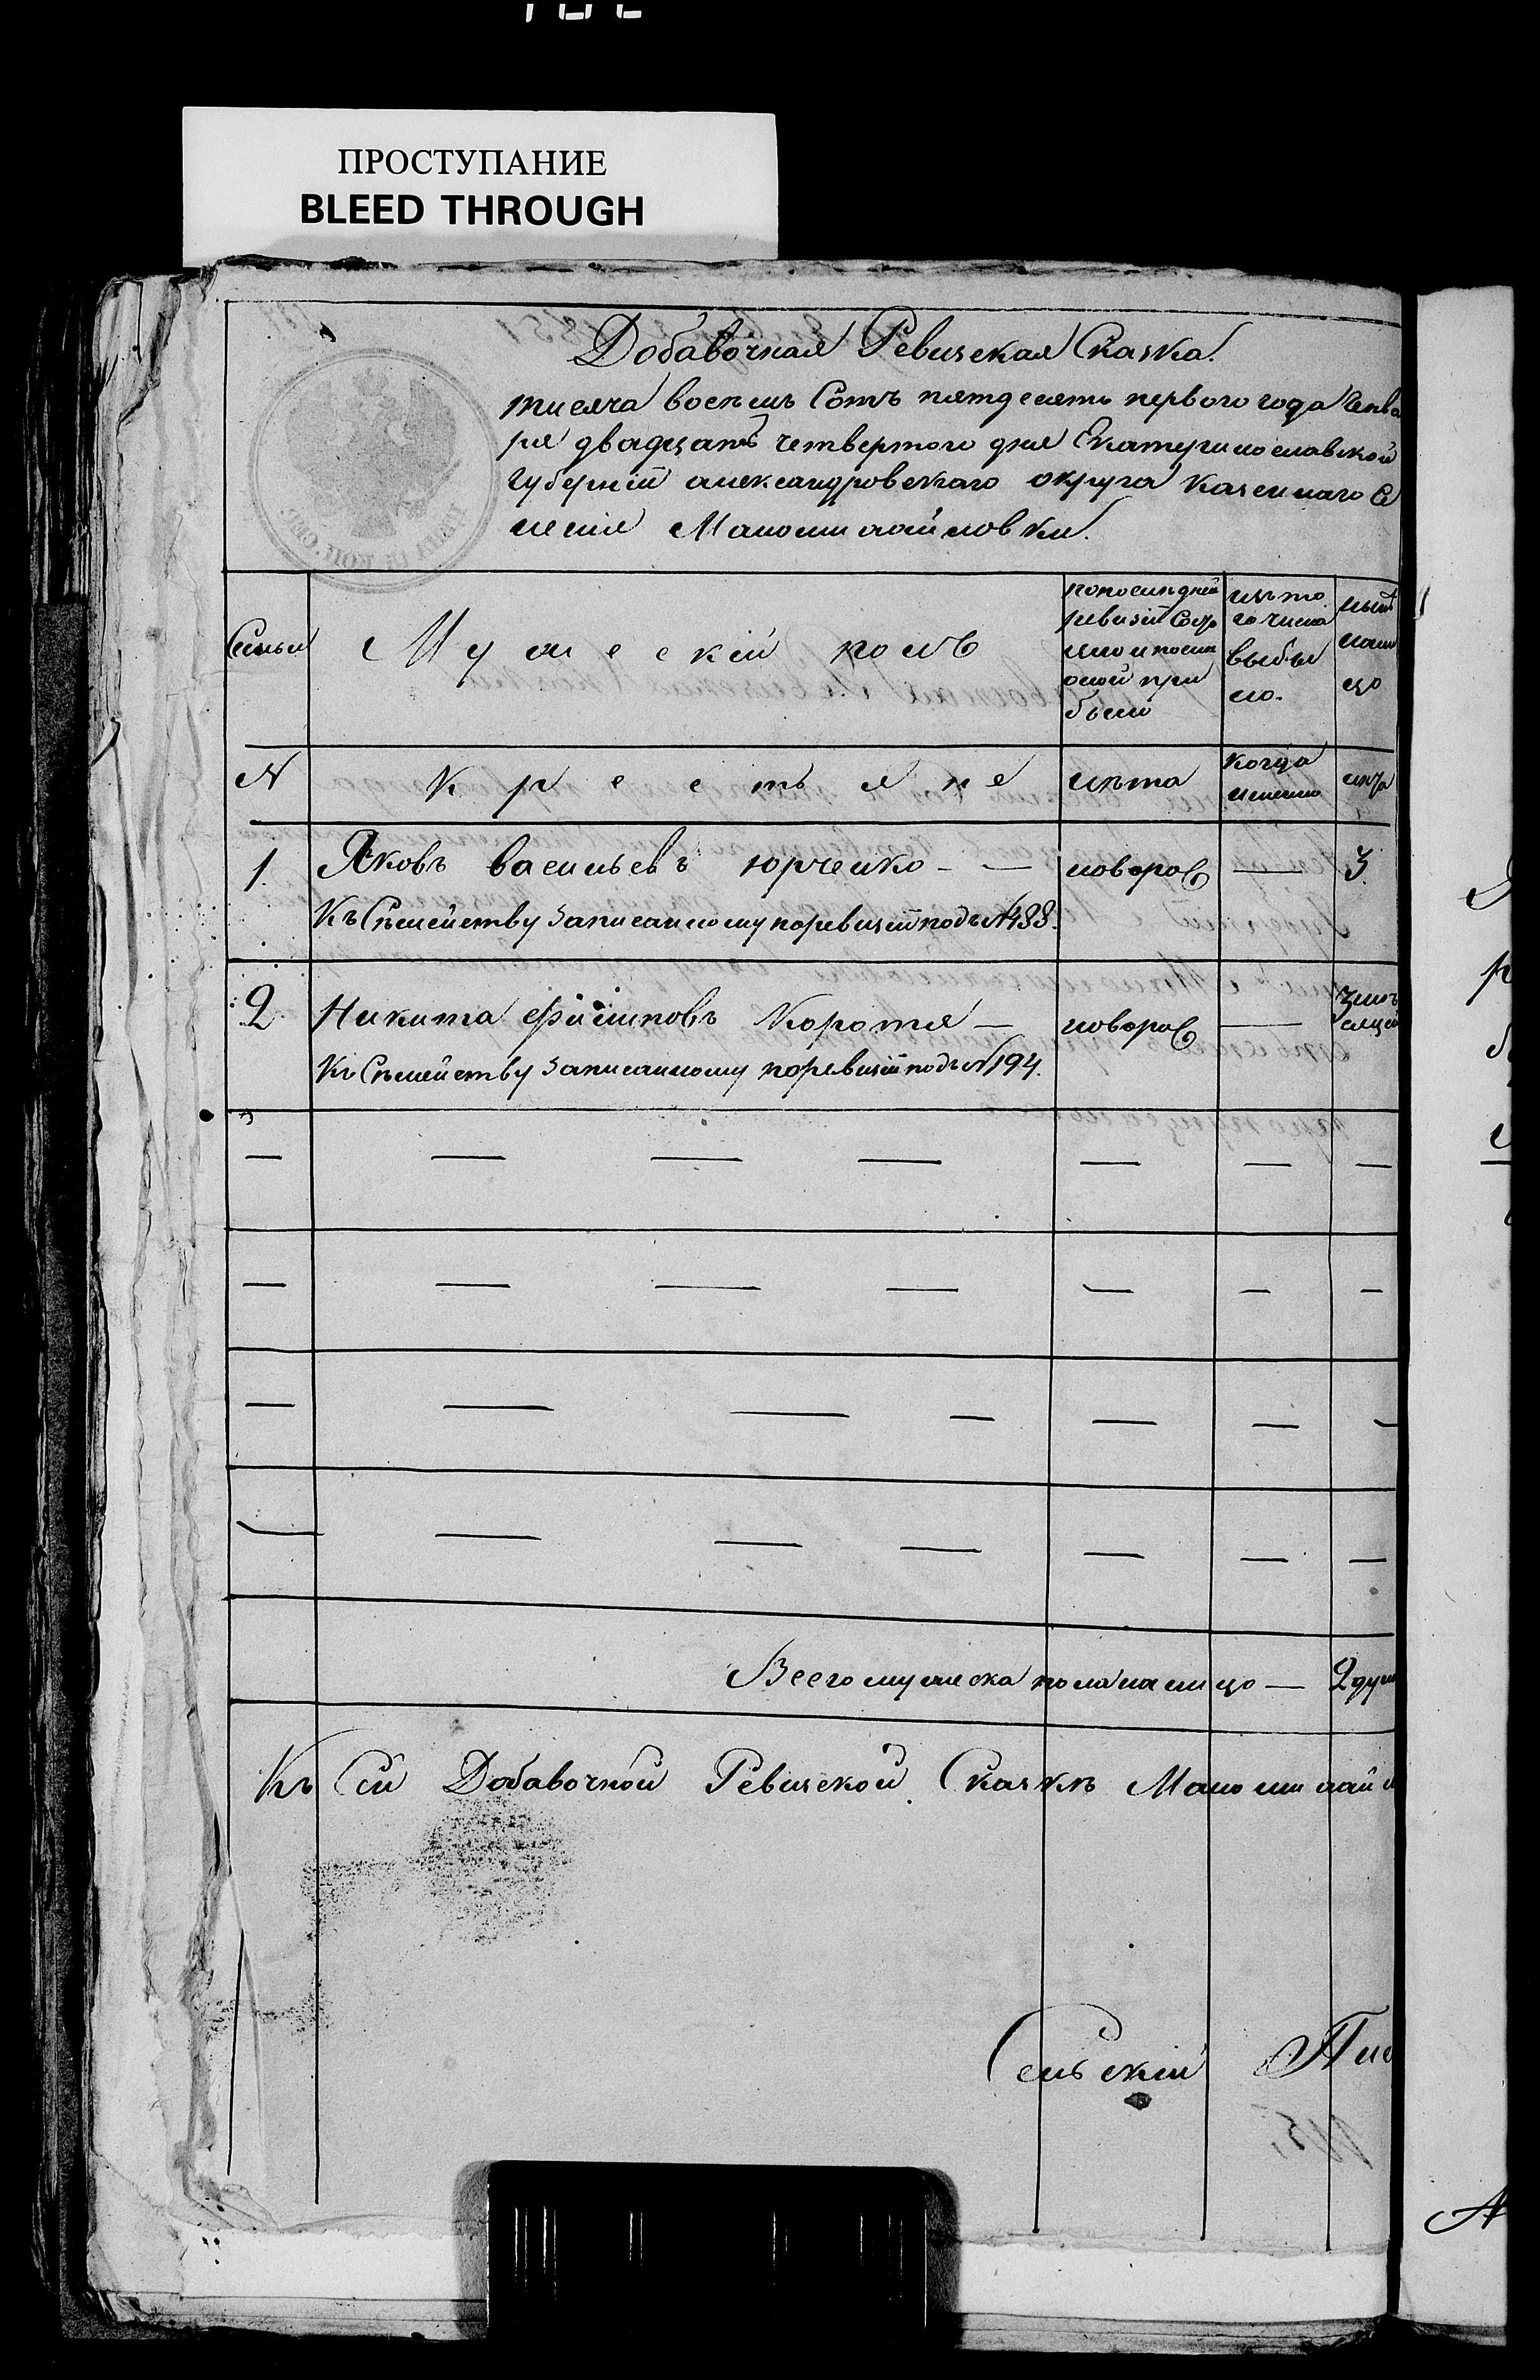 ПРОСТУПАНИЕ
BLEED THROUGH
Добавочная Ревизская Сказка.
тисяча восемь Сотъ пятдесятъ первого года Генва
ря двадцать четвертого дня Екатеринославской
губерніи александровскаго округа казеннаго Се
ленія Маломихайловки.
Семьи
Мужескій полъ
по последней
ревизіи Состо
яло и после
оной при
было
изъ то
го числа
выбы
ло.
ныне
нали
цо
N
Крестьяне
лѣта
когда
именно
лѣта
1.
Яковъ васильевъ юрченко - —
новорос
—
3.
Къ Сѣмейству записанному по ревизіи подъ N 488.
2.
Никита филиповъ Коротя —
новорос
—
Къ Сѣмейству записанному по ревизіи подъ N 194.
Всего мужеска пола на лицо — 2 душ
Къ Сій Добавочной Ревизской Сказкѣ Маломихай
Сельскій Пис